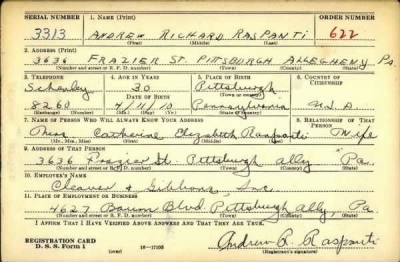 SERIAL NUMBER 1. NAME (Print) ORDER NUMBER
3313 ANDREW RICHARD RASPANTI 622
(First) (Middle) (Last)
2. ADDRESS (Print)
3636 FRAZIER ST. PITTSBURGH ALLEGHENY PA.
(Number and street or R. F. D. number) (Town) (County) (State)
3. TELEPHONE 4. AGE IN YEARS 5. PLACE OF BIRTH 6. COUNTRY OF CITIZENSHIP
Schenley 30 Pittsburgh
DATE OF BIRTH (Town or county)
8260 4/11/10 Pennsylvania U.S.A
(Exchange) (Number) (Mo.) (Day) (Yr.) (State or country)
7. NAME OF PERSON WHO WILL ALWAYS KNOW YOUR ADDRESS 8. RELATIONSHIP OF THAT PERSON
Mrs. Catherine Elizabeth Raspanti Wife
(Mr., Mrs., Miss) (First) (Middle) (Last)
9. ADDRESS OF THAT PERSON
3636 Frazier St. Pittsburgh Ally Pa.
(Number and street or R. F. D. number) (Town) (County) (State)
10. EMPLOYER'S NAME
Cleaver & Gibbons, Inc.
11. PLACE OF EMPLOYMENT OR BUSINESS
4627 Baum Blvd. Pittsburgh Ally, Pa.
(Number and street or R. F. D. number) (Town) (County) (State)
I AFFIRM THAT I HAVE VERIFIED ABOVE ANSWERS AND THAT THEY ARE TRUE.
REGISTRATION CARD
D. S. S. Form 1 (over) Andrew R. Raspanti
(Registrant's signature)